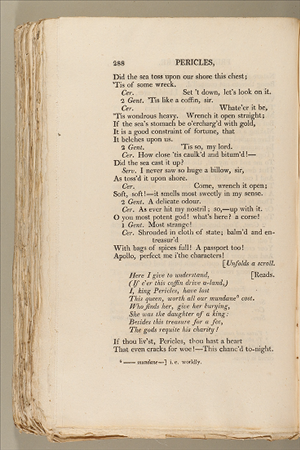 288 PERICLES,
Did the sea toss upon our shore this chest;
'Tis of some wreck.
Cer. Set 't down, let's look on it.
2 Gent. 'Tis like a coffin, sir.
Cer. Whate'er it be,
'Tis wondrous heavy. Wrench it open straight;
If the sea's stomach be o'ercharg'd with gold,
It is a good constraint of fortune, that
It belches upon us.
2 Gent. 'Tis so, my lord.
Cer. How close 'tis caulk'd and bitum'd!—
Did the sea cast it up?
Serv. I never saw so huge a billow, sir,
As toss'd it upon shore.
Cer. Come, wrench it open;
Soft, soft!—it smells most sweetly in my sense.
2 Gent. A delicate odour.
Cer. As ever hit my nostril; so,—up with it.
O you most potent god! what's here? a corse!
1 Gent. Most strange!
Cer. Shrouded in cloth of state; balm'd and en-
treasur'd
With bags of spices full! A passport too!
Apollo, perfect me i'the characters!
[Unfolds a scroll.
Here I give to understand, [Reads.
(If e'er this coffin drive a-land,)
I, king Pericles, have lost
This queen, worth all our mundane⁸ cost.
Who finds her, give her burying,
She was the daughter of a king:
Besides this treasure for a fee,
The gods requite his charity!
If thou liv'st, Pericles, thou hast a heart
That even cracks for woe!—This chanc'd to-night.
⁸ —— mundane—] i. e. worldly.